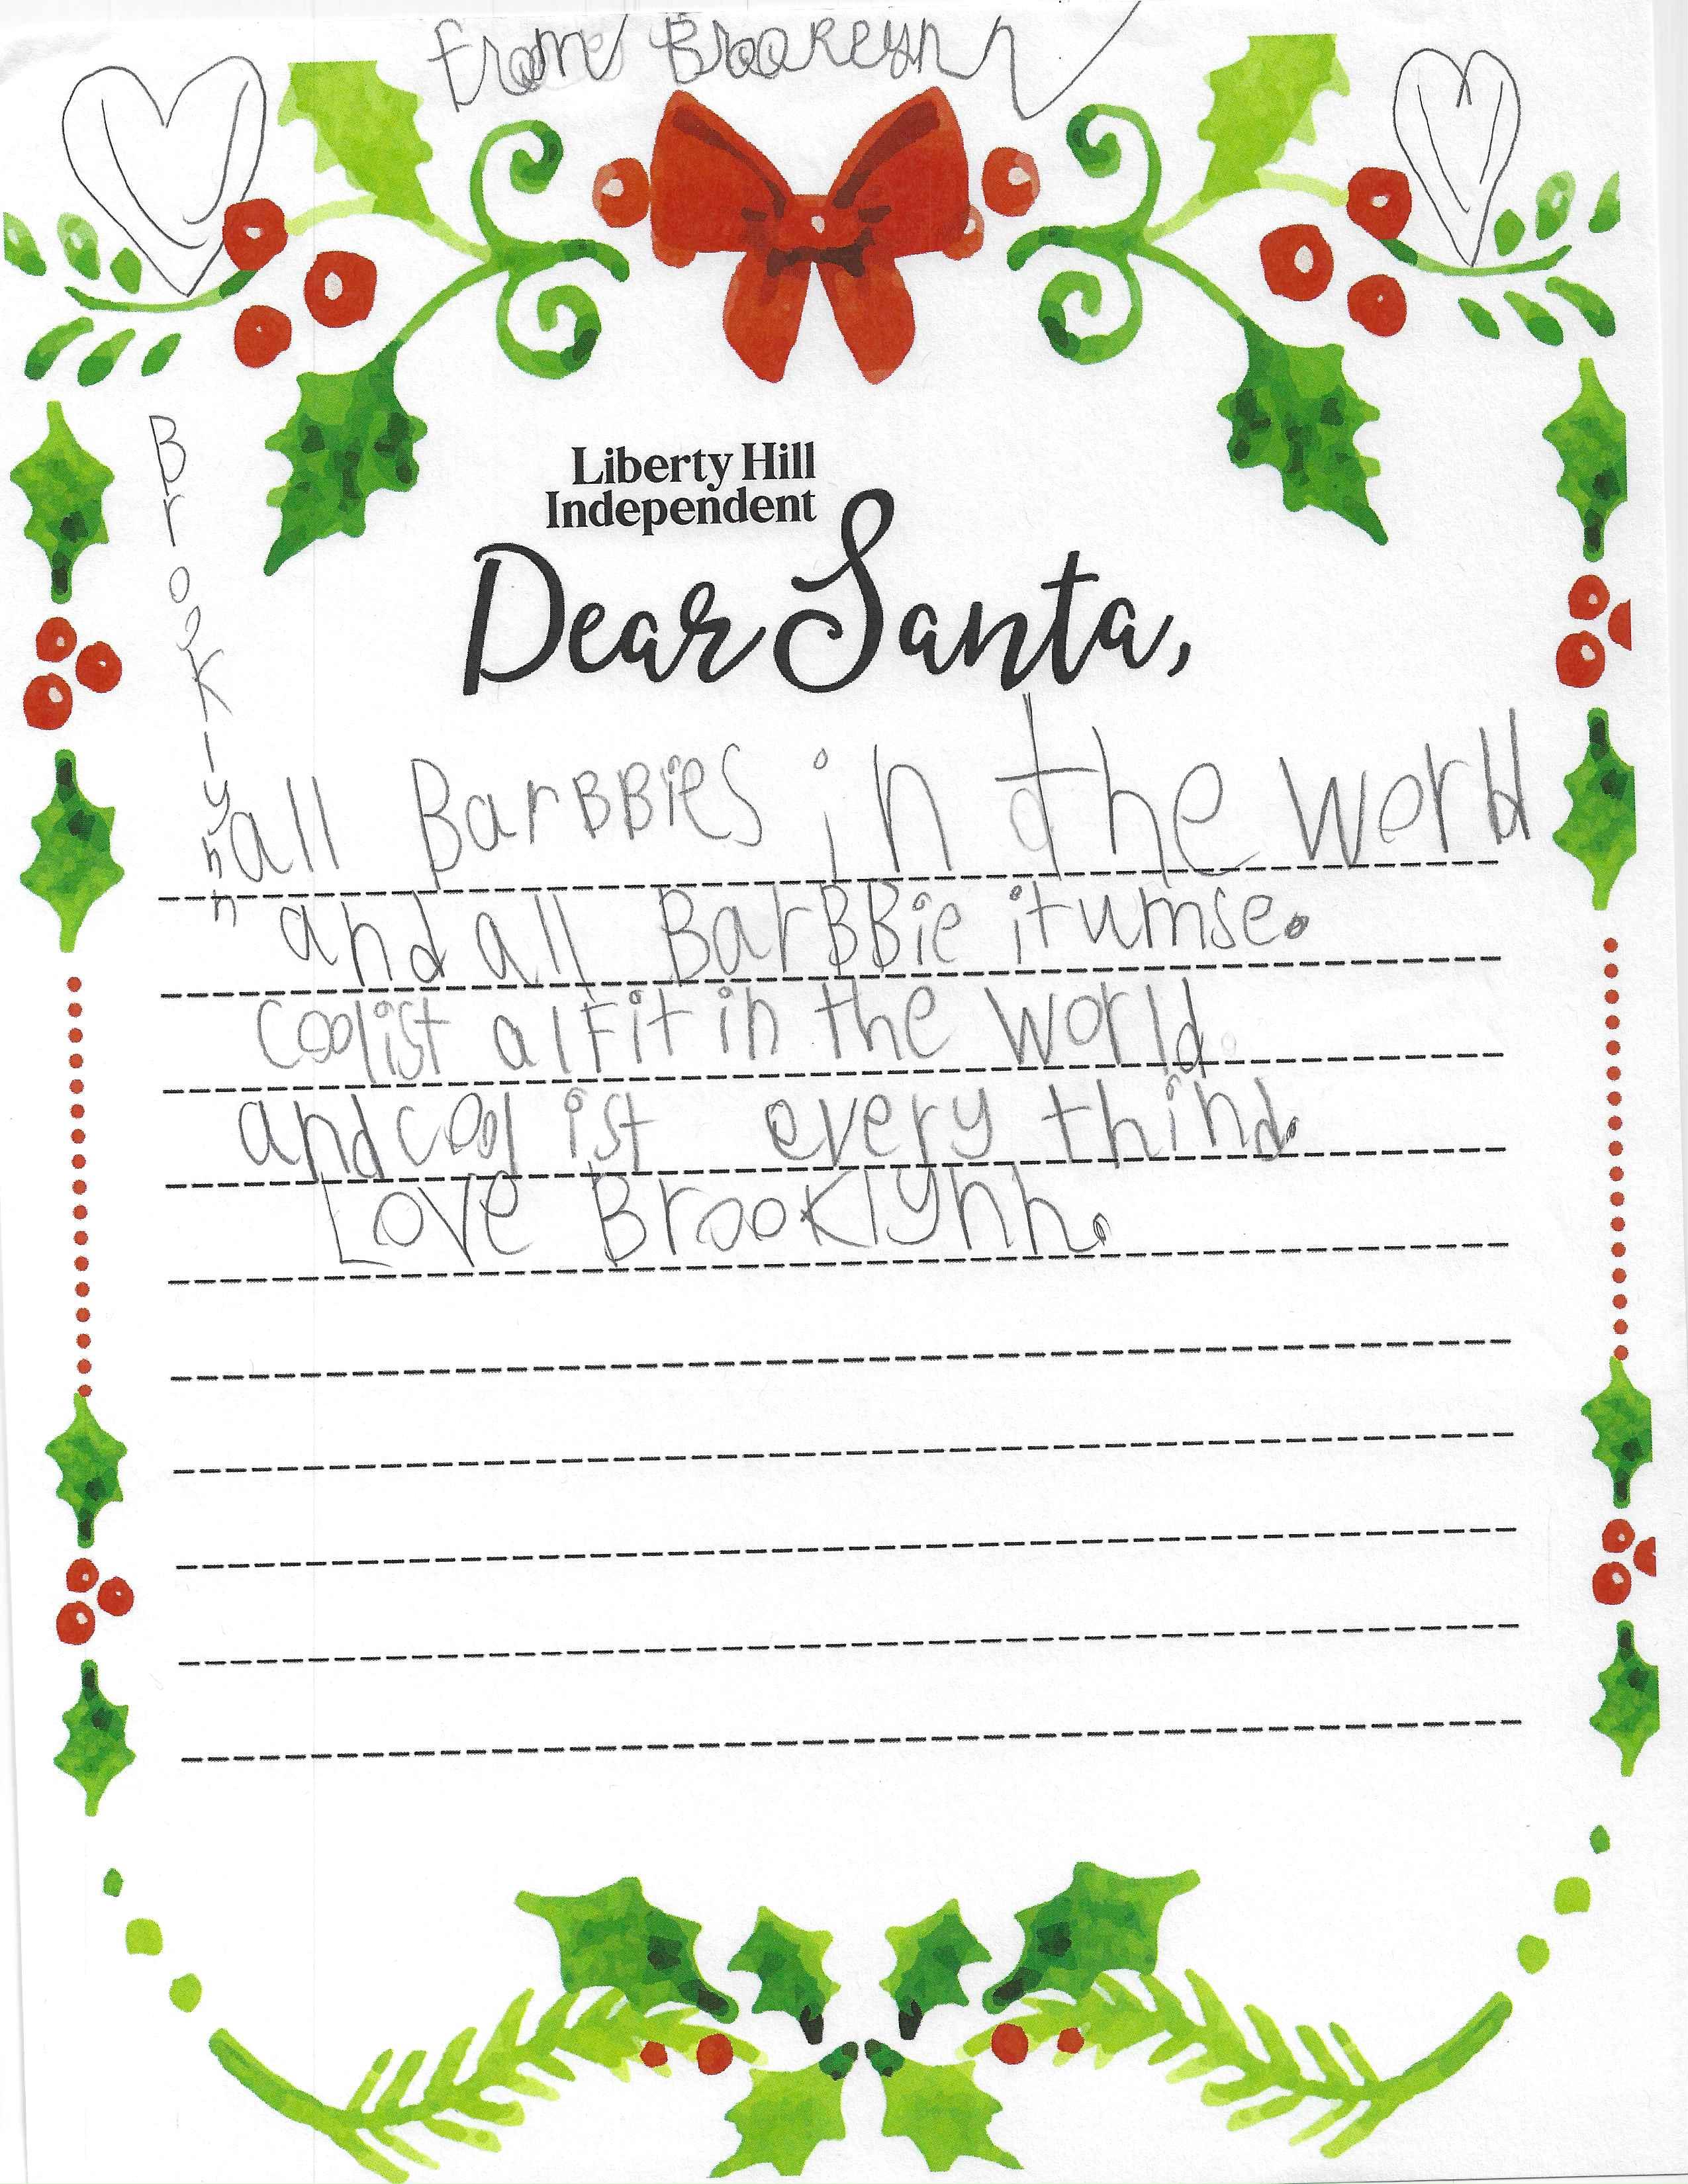 from Brookeynn
Brooklynn
Liberty Hill
Independent
Dear Santa,
all BarBBies in the world
and all BarBBie itumse.
coolist alFit in the world.
and coolist every thind.
Love Brooklynn.